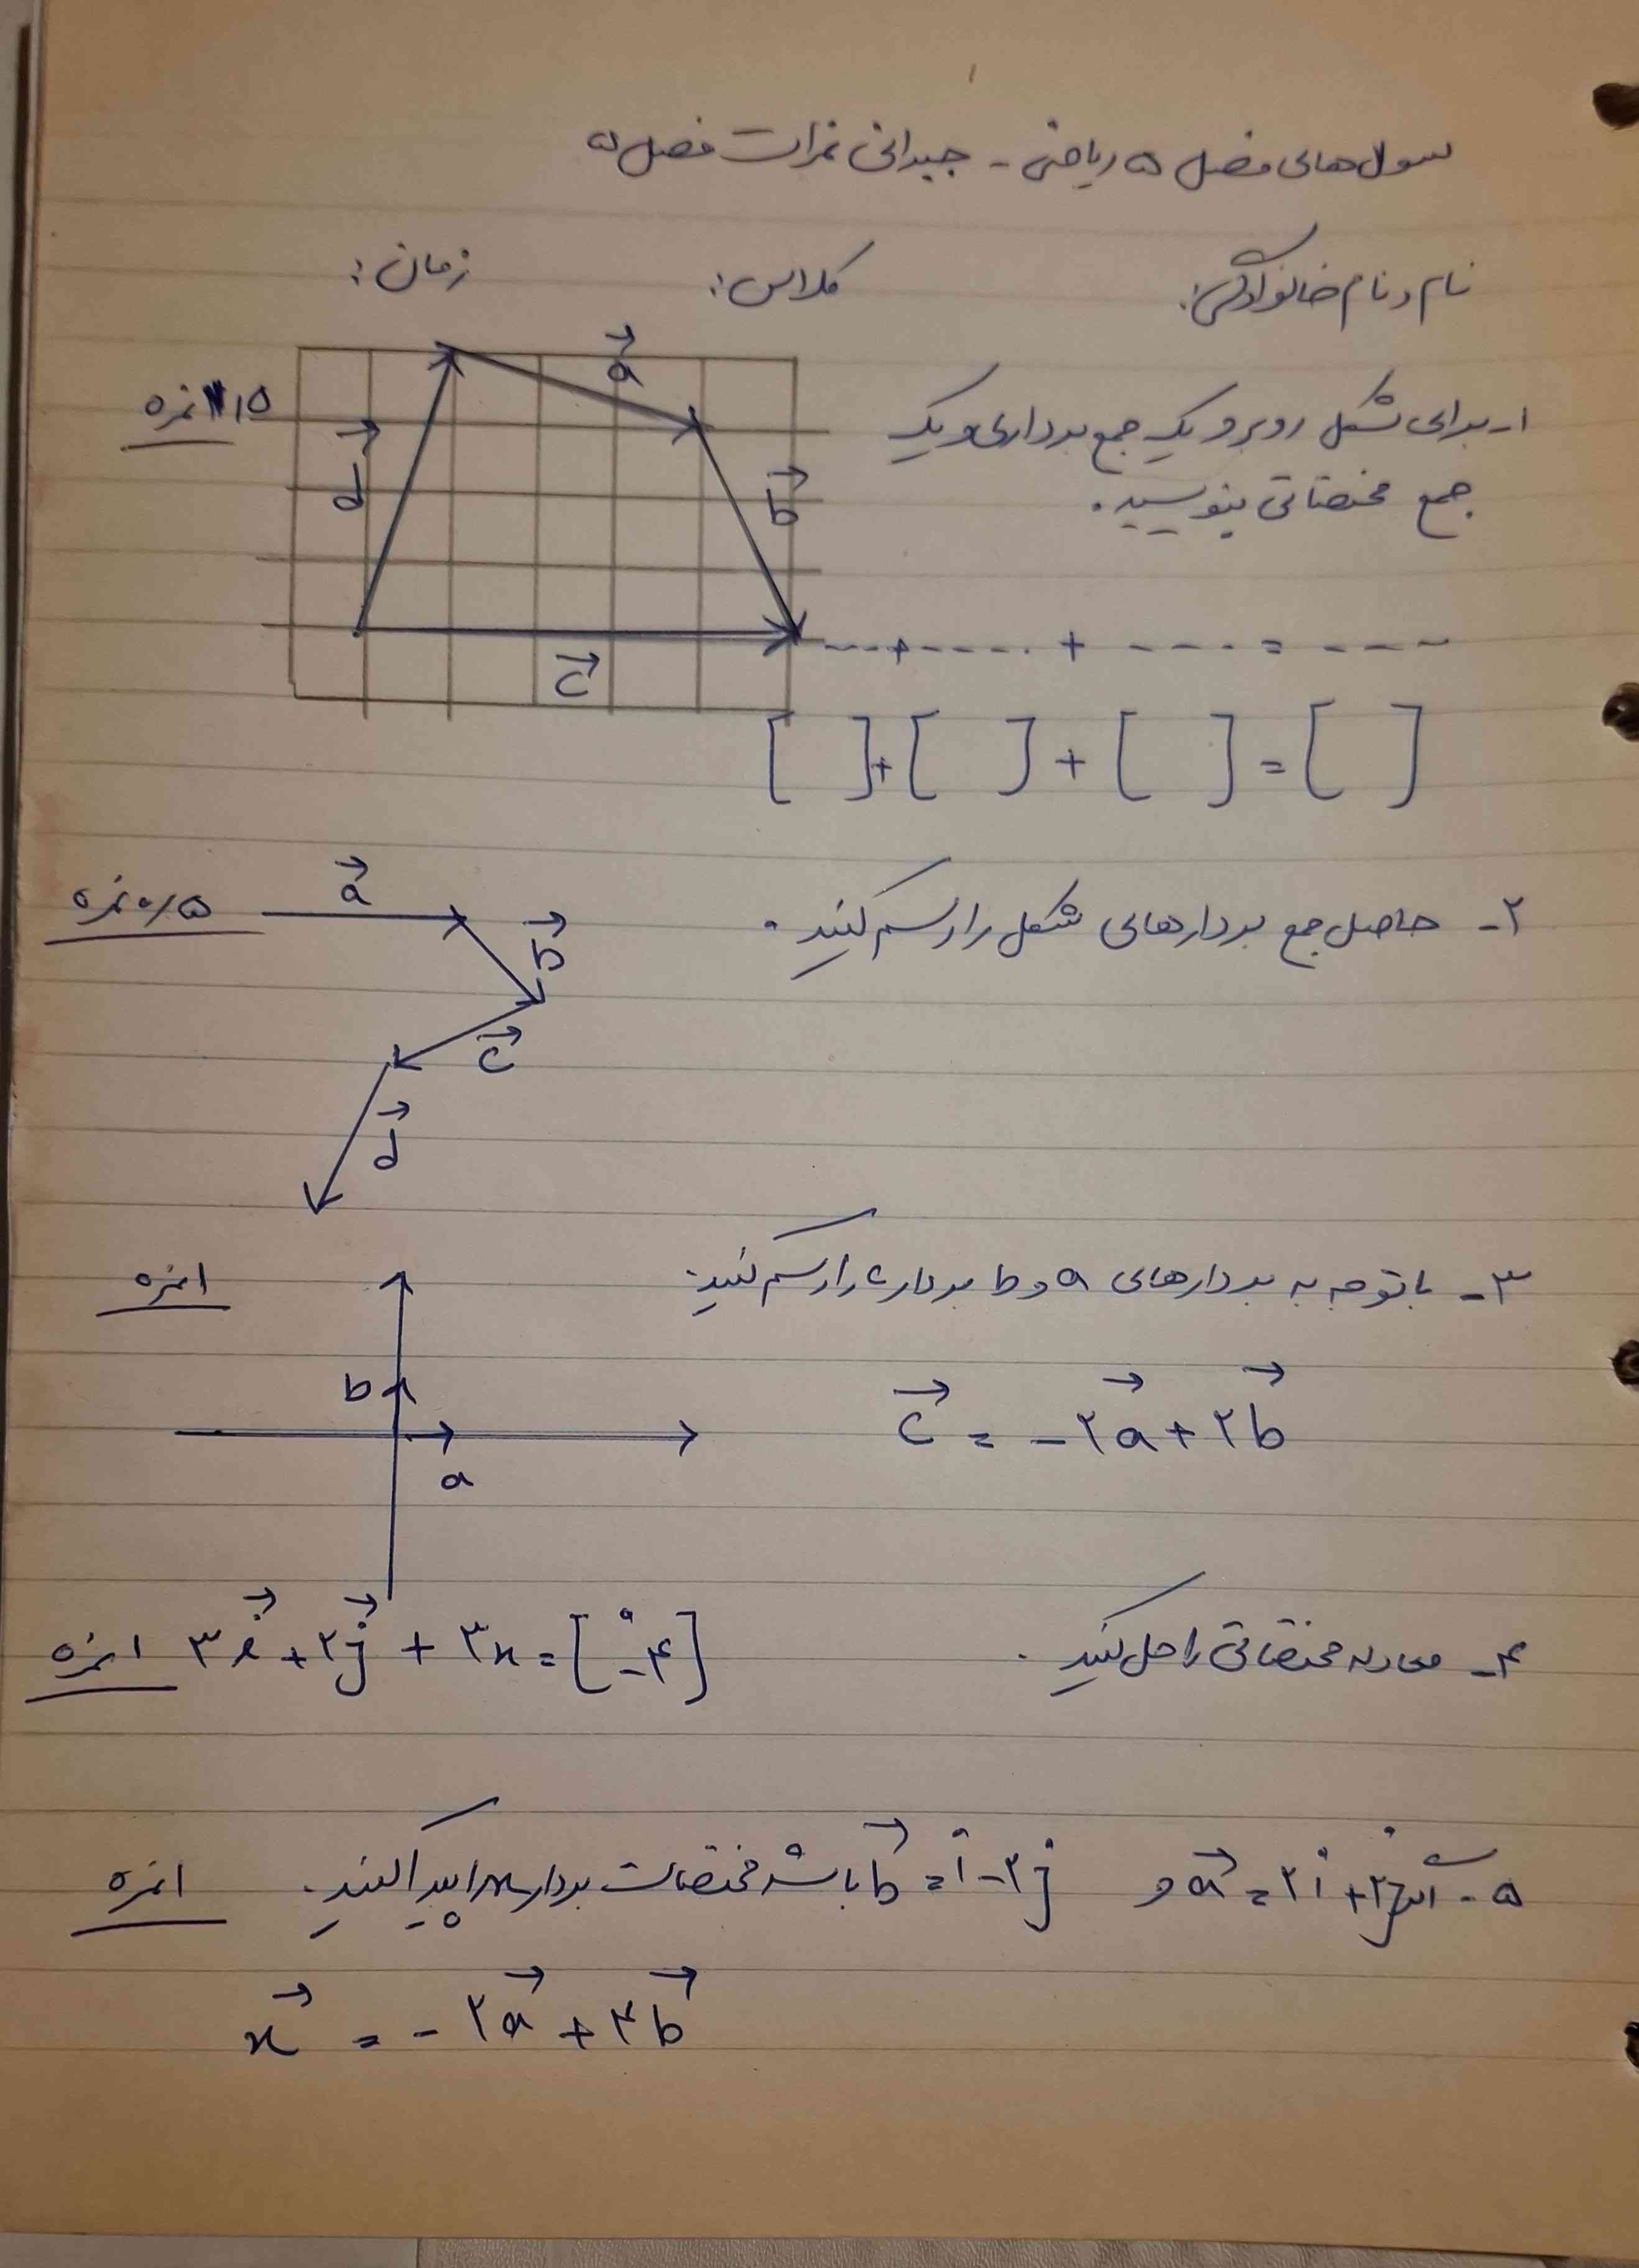 سوال های فصل ۵ ریاضی - جبرانی نمرات فصل ۵
نام و نام خانوادگی: کلاس: زمان:
۱- برای شکل روبرو یک جمع برداری و یک
جمع مختصاتی بنویسید.
۱/۵ نمره
a
d
b
c
.... + ..... + ..... = .....
[ ] + [ ] + [ ] = [ ]
۲- حاصل جمع بردارهای شکل را رسم کنید. ۰/۵ نمره
a
b
c
d
۳- با توجه به بردارهای a و b بردار c را رسم کنید. ۱ نمره
b
a
c = -۲a + ۲b
۴- معادله مختصاتی را حل کنید. ۳i + ۲j + ۳x = [۰ -۴] ۱ نمره
۵- اگر a = ۲i + ۳j و b = i - ۲j باشد مختصات بردار x را پیدا کنید. ۱ نمره
x = -۲a + ۳b